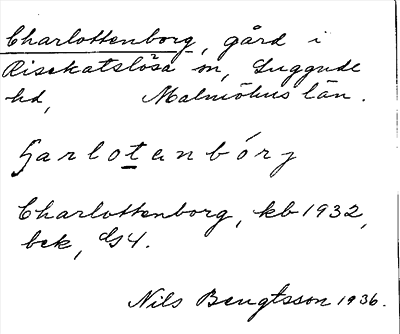 Charlottenborg, gård i
Risekatslösa sn, Luggude
hd, Malmöhus län.
ʃarlotenbórj
Charlottenborg, kb 1932,
bek, GS4.
Nils Bengtsson 1936.